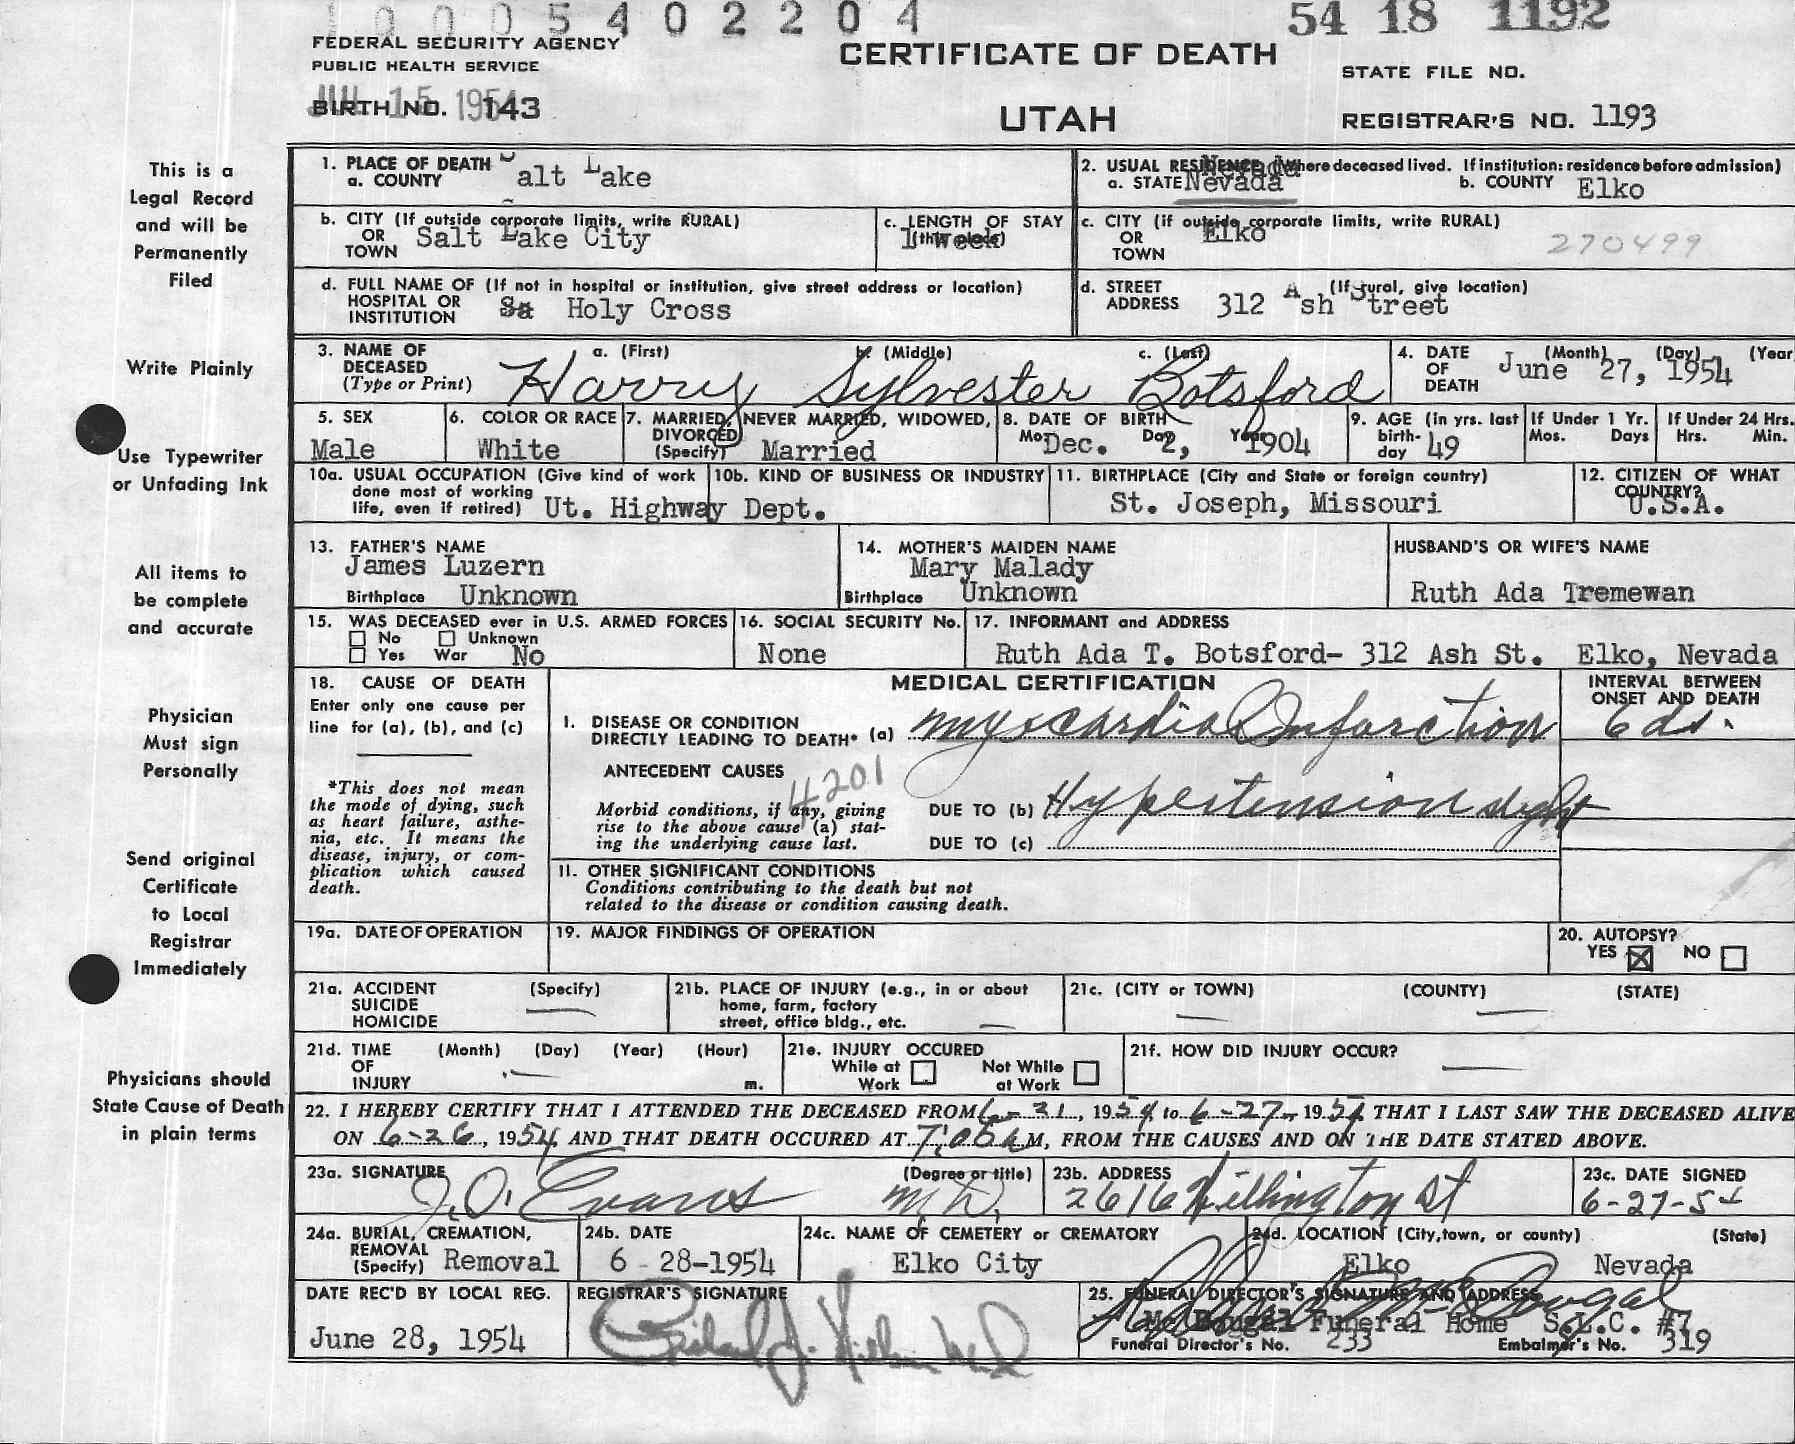 10005402204
54 18 1192
FEDERAL SECURITY AGENCY
PUBLIC HEALTH SERVICE
JUL 15 1954
BIRTH NO. 143
CERTIFICATE OF DEATH
UTAH
STATE FILE NO.
REGISTRAR'S NO. 1193
This is a
Legal Record
and will be
Permanently
Filed
Write Plainly
Use Typewriter
or Unfading Ink
All items to
be complete
and accurate
Physician
Must sign
Personally
Send original
Certificate
to Local
Registrar
Immediately
Physicians should
State Cause of Death
in plain terms
1. PLACE OF DEATH
a. COUNTY Salt Lake
2. USUAL RESIDENCE (Where deceased lived. If institution: residence before admission)
a. STATE Nevada b. COUNTY Elko
b. CITY (If outside corporate limits, write RURAL)
OR
TOWN Salt Lake City
c. LENGTH OF STAY
(this place) 1 week
c. CITY (if outside corporate limits, write RURAL)
OR
TOWN Elko
270499
d. FULL NAME OF (If not in hospital or institution, give street address or location)
HOSPITAL OR
INSTITUTION Holy Cross
d. STREET (If rural, give location)
ADDRESS 312 Ash Street
3. NAME OF a. (First) b. (Middle) c. (Last)
DECEASED
(Type or Print) Harry Sylvester Botsford
4. DATE (Month) (Day) (Year
OF
DEATH June 27, 1954
5. SEX
Male
6. COLOR OR RACE
White
7. MARRIED, NEVER MARRIED, WIDOWED,
DIVORCED
(Specify) Married
8. DATE OF BIRTH
Mo. Dec. Day 2, Year 1904
9. AGE (in yrs. last
birth-
day 49
If Under 1 Yr.
Mos. Days
If Under 24 Hrs.
Hrs. Min.
10a. USUAL OCCUPATION (Give kind of work
done most of working
life, even if retired) Ut. Highway Dept.
10b. KIND OF BUSINESS OR INDUSTRY
11. BIRTHPLACE (City and State or foreign country)
St. Joseph, Missouri
12. CITIZEN OF WHAT
COUNTRY?
U.S.A.
13. FATHER'S NAME
James Luzern
Birthplace Unknown
14. MOTHER'S MAIDEN NAME
Mary Malady
Birthplace Unknown
HUSBAND'S OR WIFE'S NAME
Ruth Ada Tremewan
15. WAS DECEASED ever in U.S. ARMED FORCES
No Unknown
Yes War No
16. SOCIAL SECURITY No.
None
17. INFORMANT and ADDRESS
Ruth Ada T. Botsford- 312 Ash St. Elko, Nevada
18. CAUSE OF DEATH
Enter only one cause per
line for (a), (b), and (c)
*This does not mean
the mode of dying, such
as heart failure, asthe-
nia, etc. It means the
disease, injury, or com-
plication which caused
death.
MEDICAL CERTIFICATION
INTERVAL BETWEEN
ONSET AND DEATH
I. DISEASE OR CONDITION
DIRECTLY LEADING TO DEATH* (a) Myocardial Infarction 6 ds.
ANTECEDENT CAUSES
4201
Morbid conditions, if any, giving
rise to the above cause (a) stat-
ing the underlying cause last.
DUE TO (b) Hypertension slight
DUE TO (c)
II. OTHER SIGNIFICANT CONDITIONS
Conditions contributing to the death but not
related to the disease or condition causing death.
19a. DATE OF OPERATION
19. MAJOR FINDINGS OF OPERATION
20. AUTOPSY?
YES X NO
21a. ACCIDENT (Specify)
SUICIDE
HOMICIDE
21b. PLACE OF INJURY (e.g., in or about
home, farm, factory
street, office bldg., etc.
21c. (CITY or TOWN) (COUNTY) (STATE)
21d. TIME (Month) (Day) (Year) (Hour)
OF
INJURY m.
21e. INJURY OCCURED
While at Work Not While at Work
21f. HOW DID INJURY OCCUR?
22. I HEREBY CERTIFY THAT I ATTENDED THE DECEASED FROM 6-21, 1954 to 6-27- 1954 THAT I LAST SAW THE DECEASED ALIVE
ON 6-26, 1954, AND THAT DEATH OCCURED AT 7:05 a M, FROM THE CAUSES AND ON THE DATE STATED ABOVE.
23a. SIGNATURE (Degree or title)
J.O. Evans M.D.
23b. ADDRESS
2616 St
23c. DATE SIGNED
6-27-54
24a. BURIAL, CREMATION,
REMOVAL
(Specify) Removal
24b. DATE
6-28-1954
24c. NAME OF CEMETERY or CREMATORY
Elko City
24d. LOCATION (City,town, or county) (State)
Elko Nevada
DATE REC'D BY LOCAL REG.
June 28, 1954
REGISTRAR'S SIGNATURE
25. FUNERAL DIRECTOR'S SIGNATURE AND ADDRESS
McDougal Funeral Home S.L.C. #7
Funeral Director's No. 233 Embalmer's No. 319